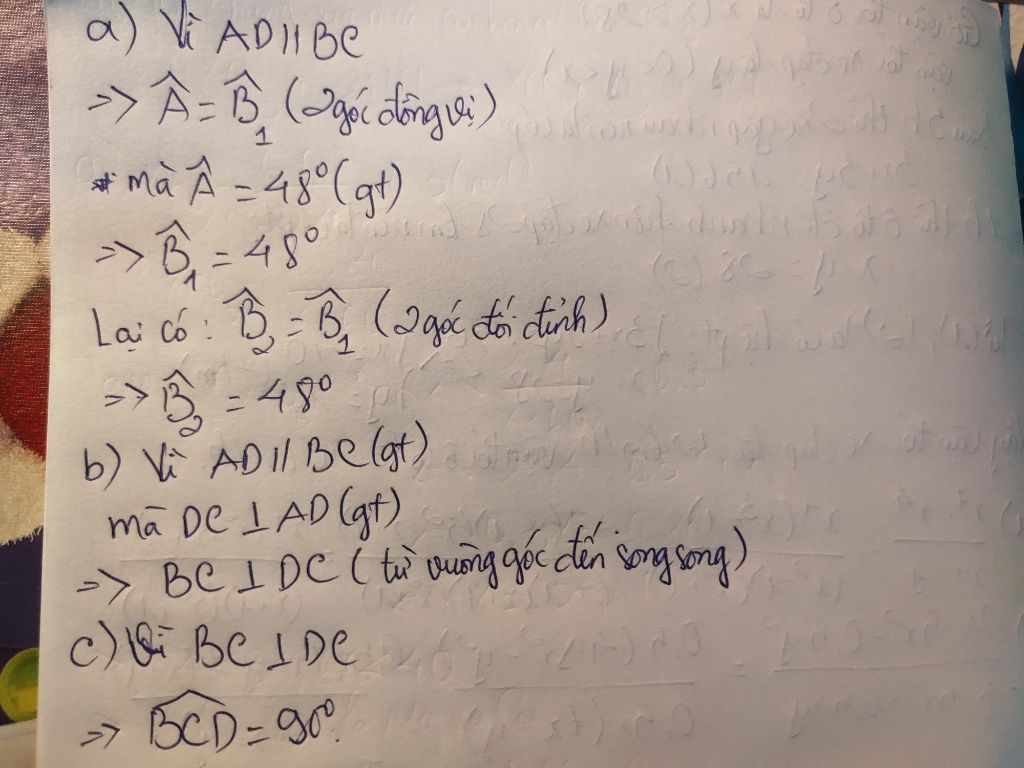 a) Vì AD // BC
=> Â = B̂₁ (2 góc đồng vị)
mà Â = 48° (gt)
=> B̂₁ = 48°
Lại có: B̂₂ = B̂₁ (2 góc đối đỉnh)
=> B̂₂ = 48°
b) Vì AD // BC (gt)
mà DC ⊥ AD (gt)
=> BC ⊥ DC (từ vuông góc đến song song)
c) Vì BC ⊥ DC
=> B̂CD = 90°.